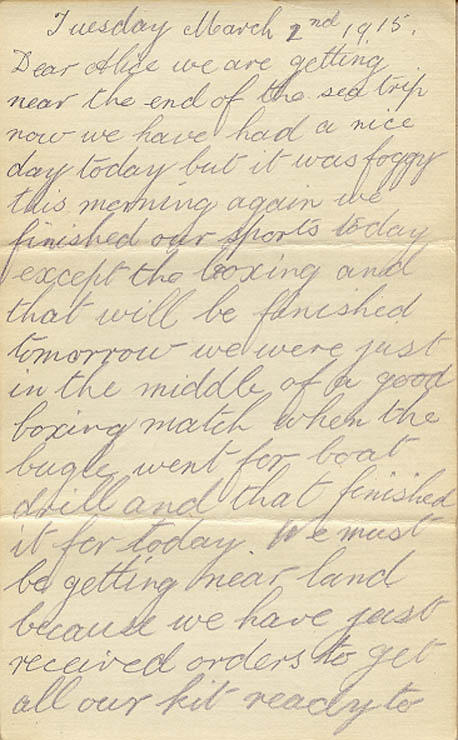 Tuesday March 2nd 1915.
Dear Alice we are getting
near the end of the sea trip
now we have had a nice
day today but it was foggy
this morning again we
finished our sports today
except the boxing and
that will be finished
tomorrow we were just
in the middle of a good
boxing match when the
bugle went for boat
drill and that finished
it for today. We must
be getting near land
because we have just
received orders to get
all our kit ready to